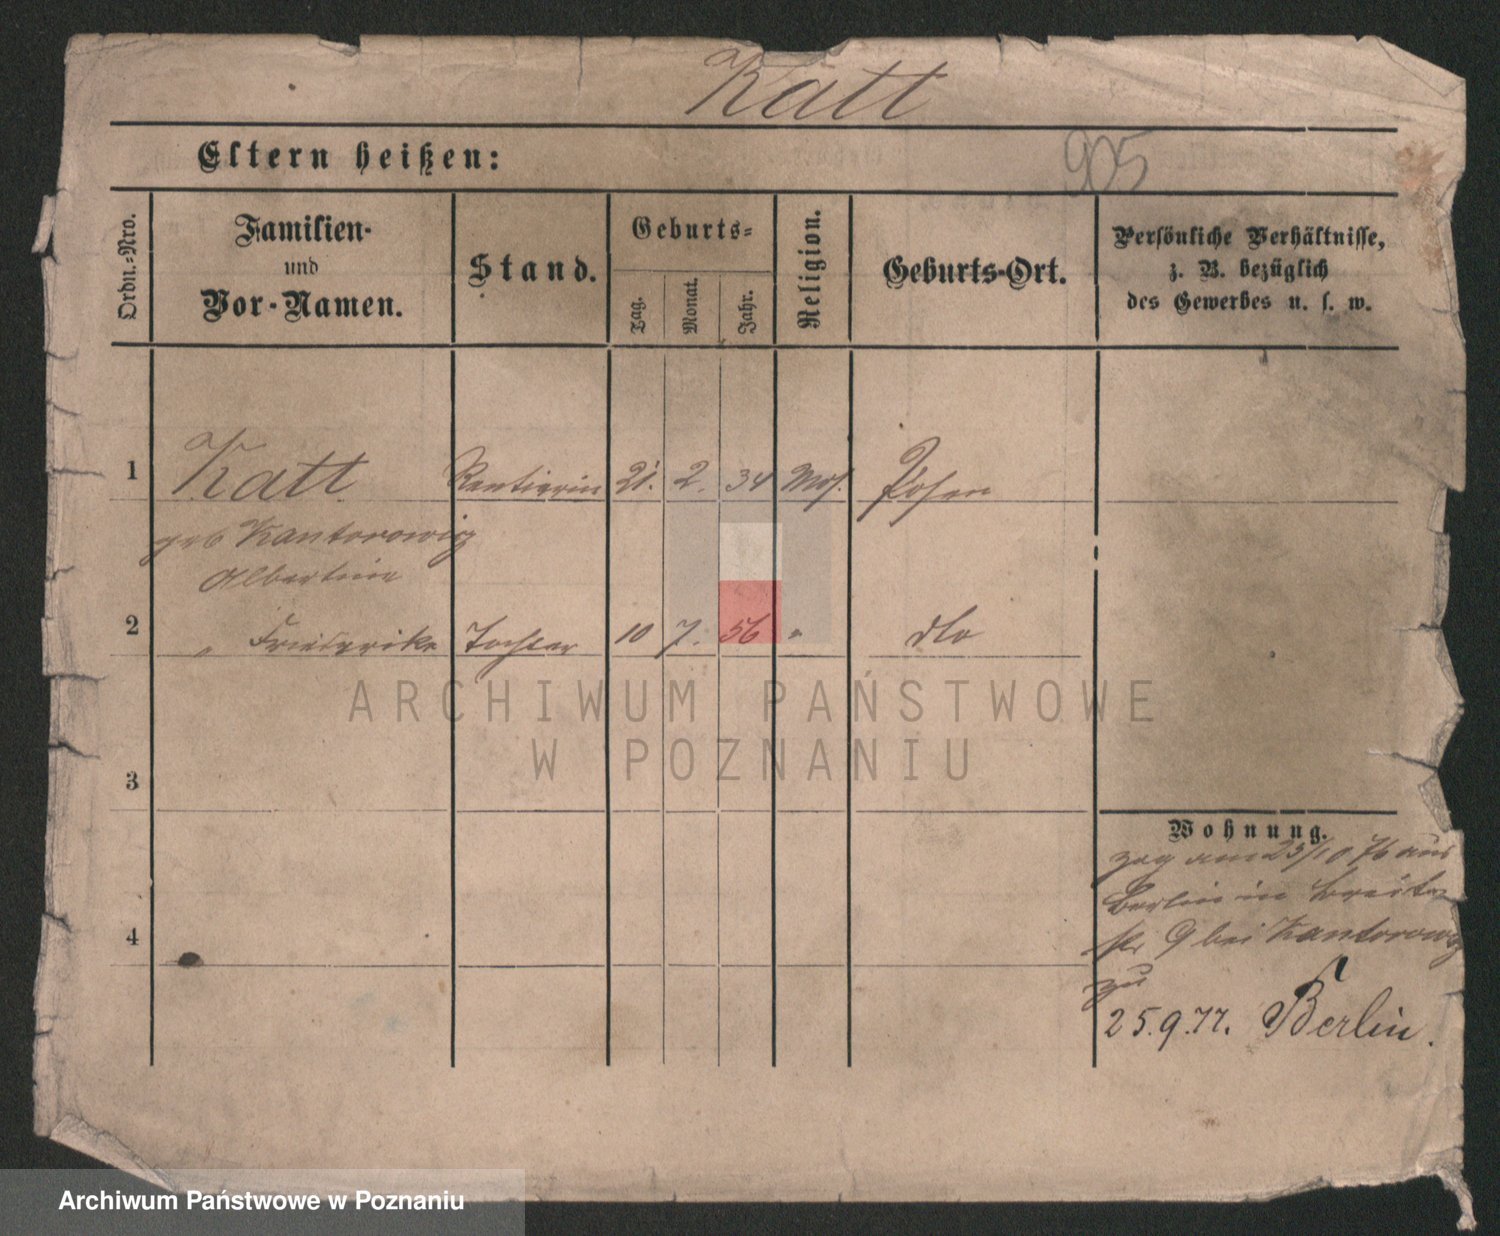 Katt
Eltern heißen:
905
Ordn.-Nro.
Familien-
und
Vor-Namen.
Stand.
Geburts-
Tag.
Monat.
Jahr.
Religion.
Geburts-Ort.
Persönliche Verhältnisse,
z. B. bezüglich
des Gewerbes u. s. w.
1 Katt Rentierin 21. 2. 34 Mos. Posen
geb Kantorowiz
Albertine
2 " Friederike Tochter 10 7. 56 " dto
ARCHIWUM PAŃSTWOWE
W POZNANIU
3
Wohnung.
zog am 25/10 76 aus
Berlin in Breite
str 9 bei Kantorowiz
zu
4
25.9.77. Berlin.
Archiwum Państwowe w Poznaniu